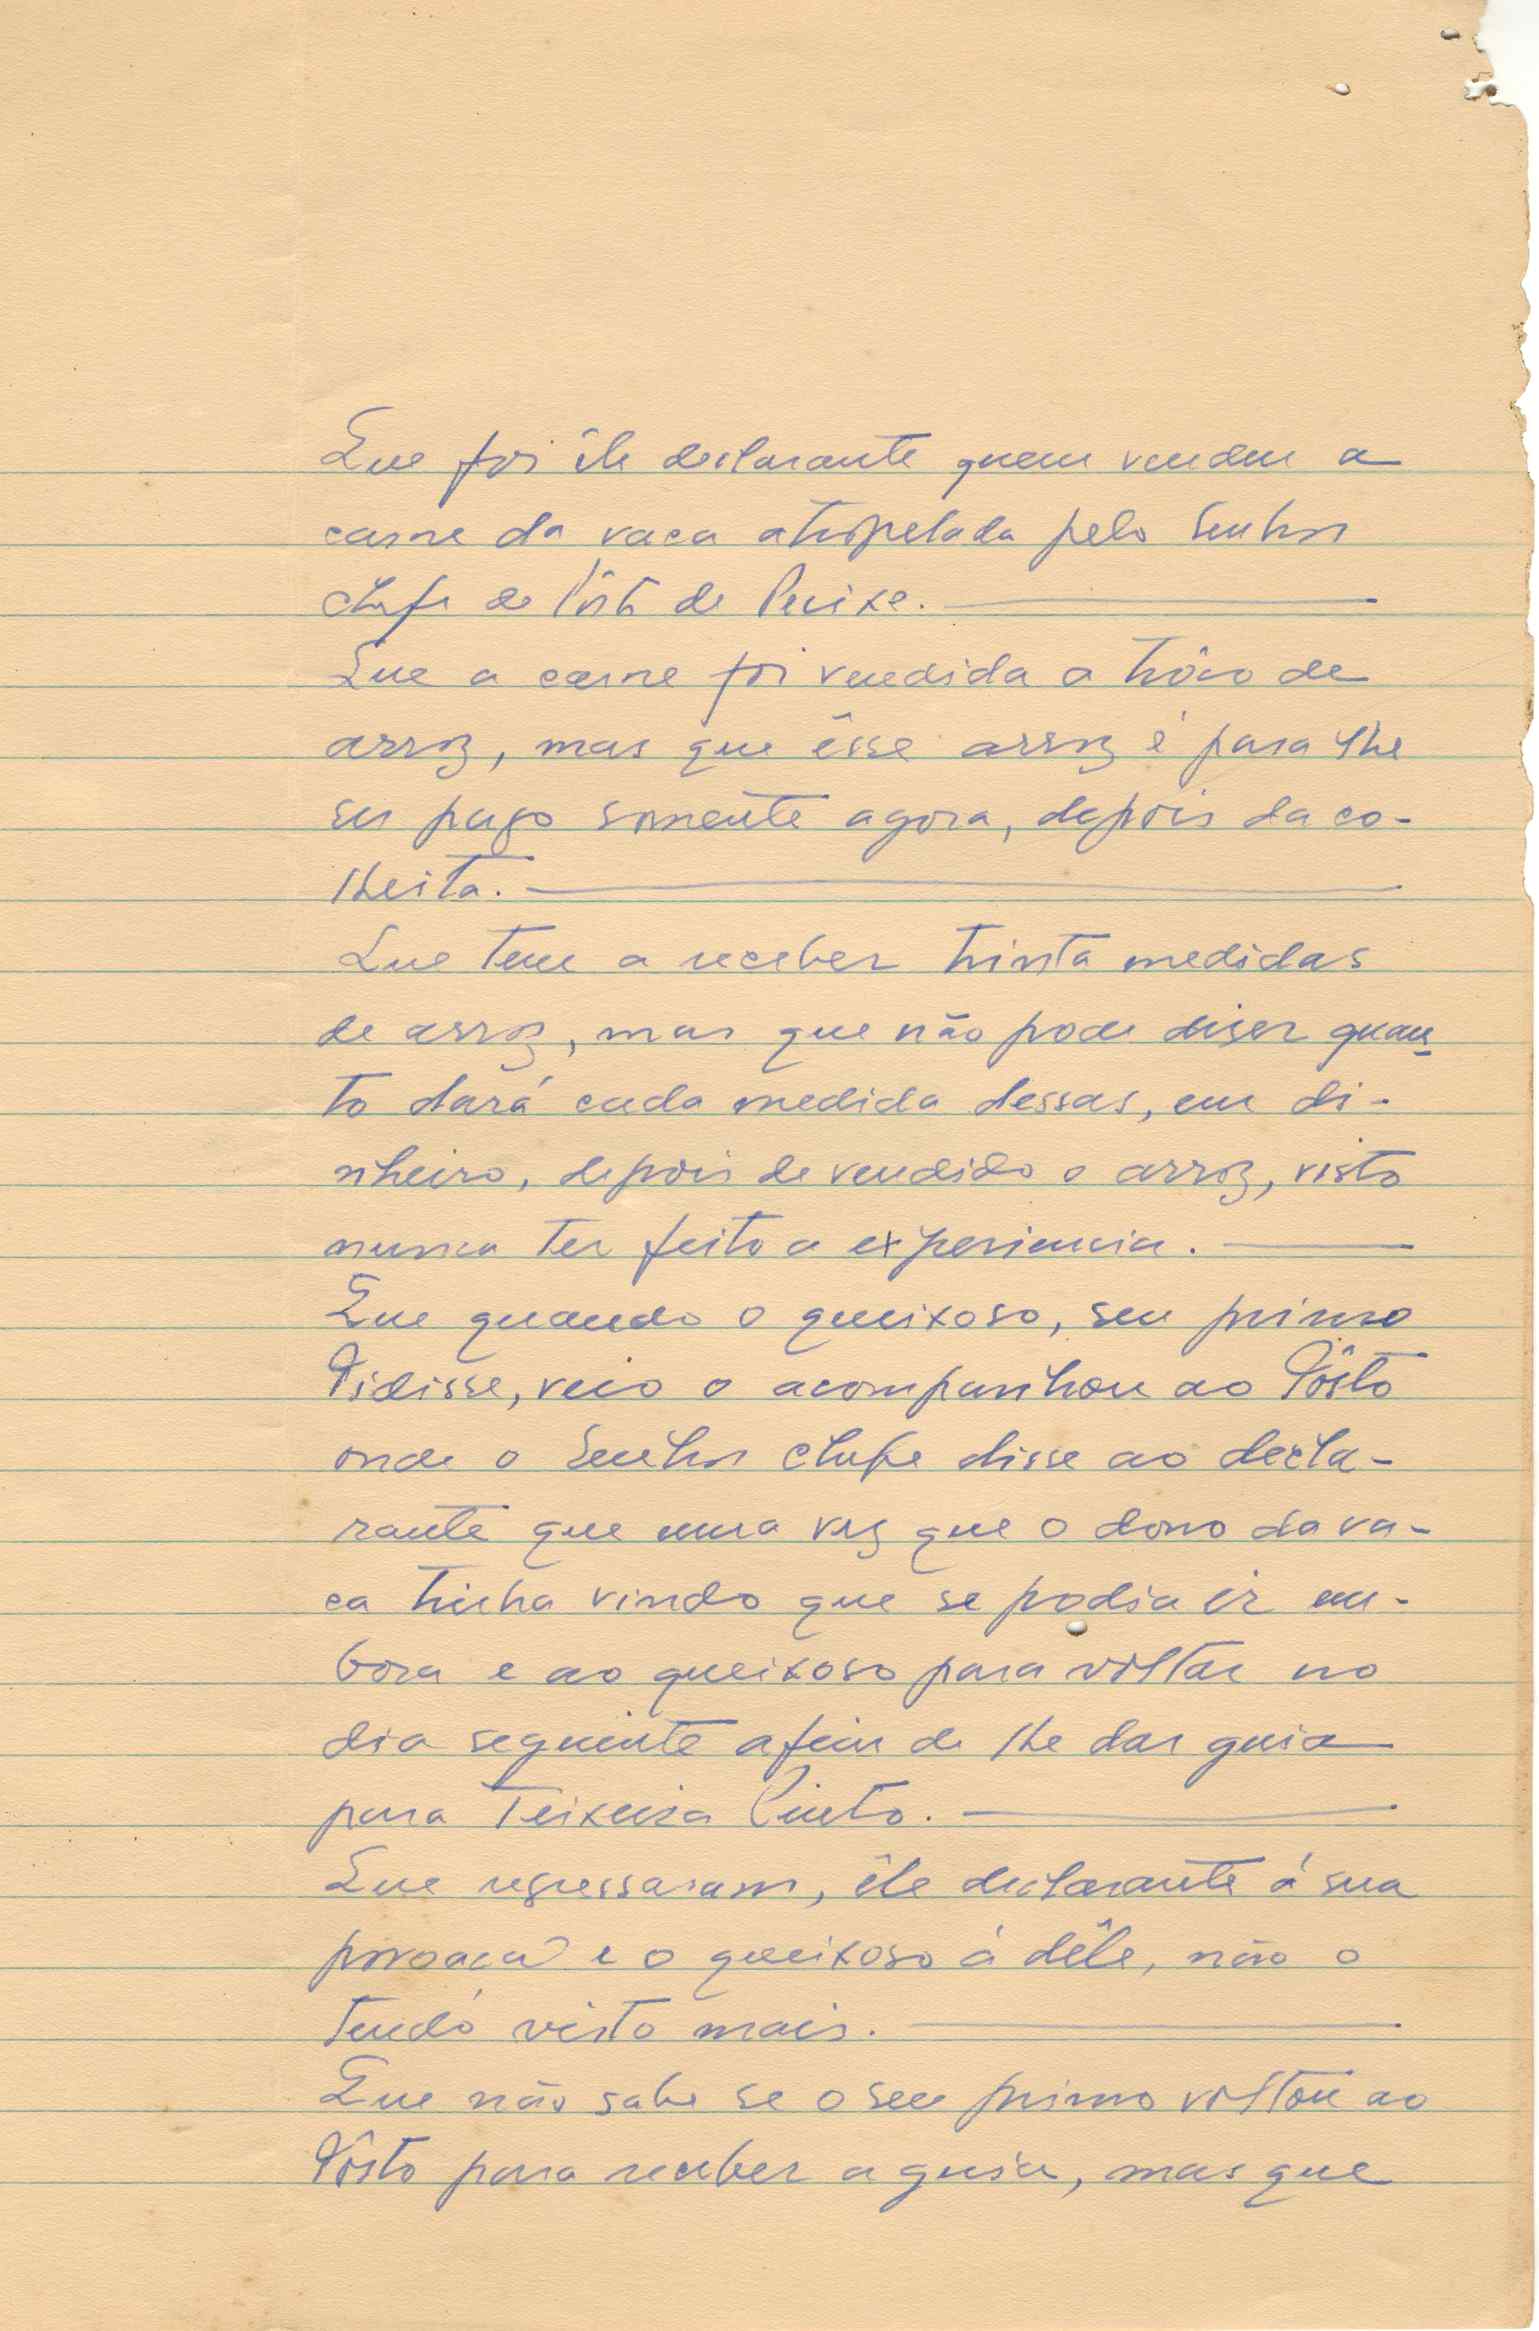 Que foi êle declarante quem vendeu a
carne da vaca atropelada pelo Senhor
chefe de Pôsto de Pecixe.
Que a carne foi vendida a trôco de
arroz, mas que êsse arroz é para lhe
ser pago somente agora, depois da co-
lheita.
Que tem a receber trinta medidas
de arroz, mas que não pode diser quan-
to dará cada medida dessas, em di-
nheiro, depois de vendido o arroz, visto
nunca ter feito a experiencia.
Que quando o queixoso, seu primo
Pidisse, veio o acompanhou ao Pôsto
onde o Senhor chefe disse ao decla-
rante que uma vez que o dono da va-
ca tinha vindo que se podia ir em-
bora e ao queixoso para voltar no
dia seguinte afim de lhe dar guia
para Teixeira Pinto.
Que regressaram, êle declarante á sua
povoação e o queixoso á dêle, não o
tendo visto mais.
Que não sabe se o seu primo voltou ao
Pôsto para receber a guia, mas que